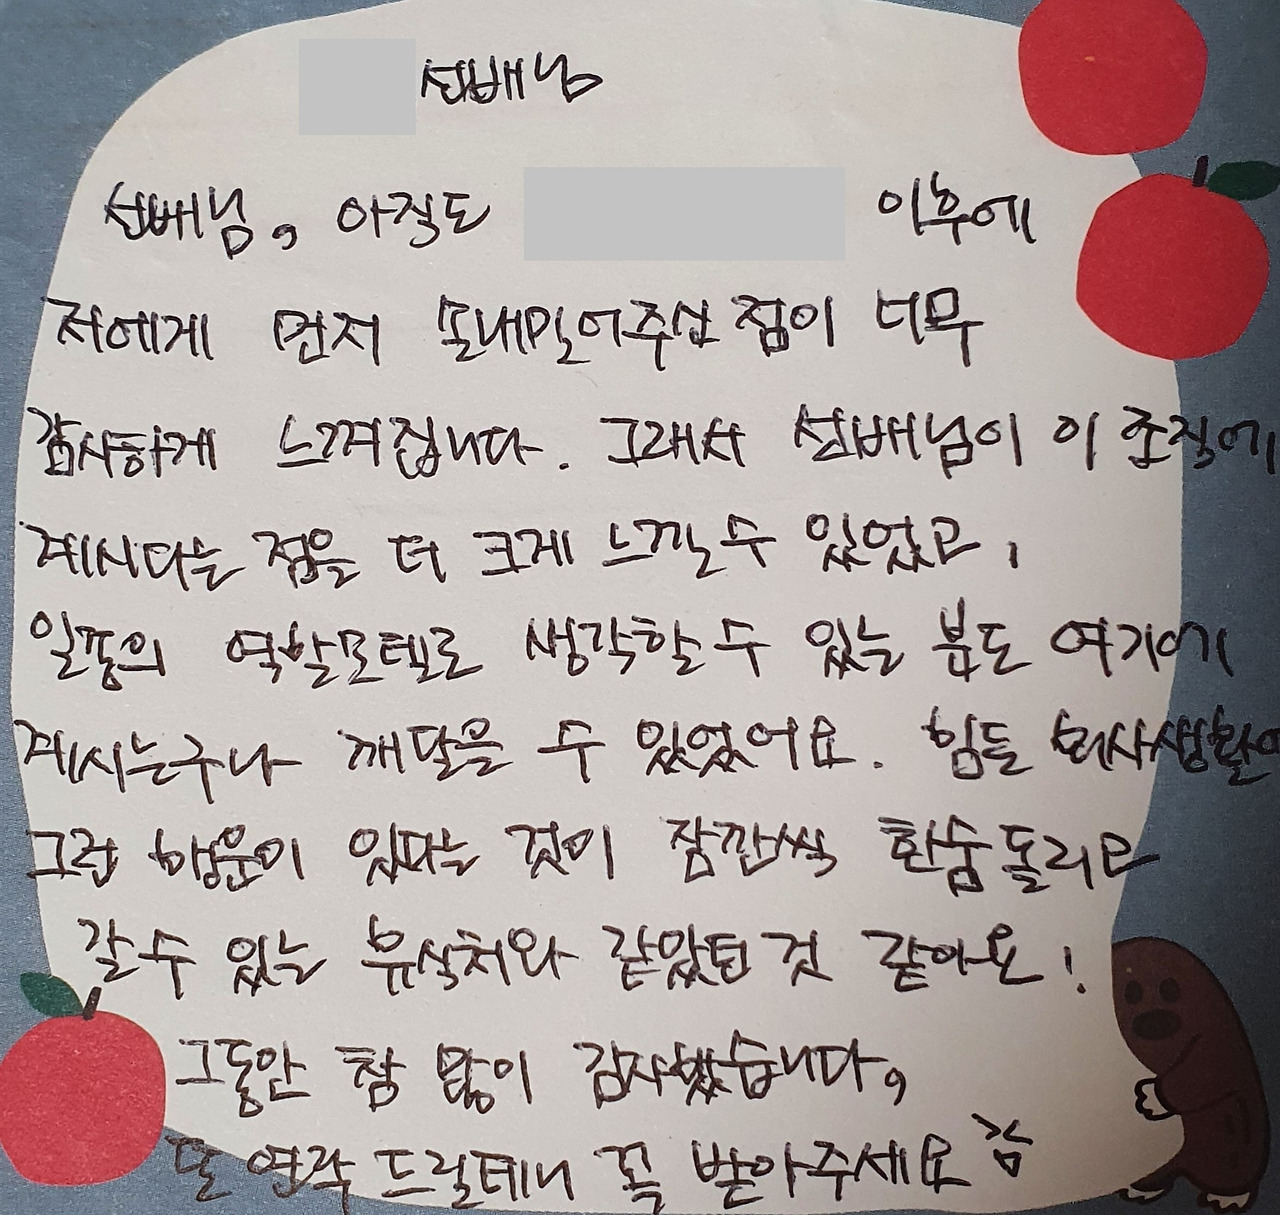 선배님
선배님, 아직도 이후에
저에게 먼저 손내밀어주신 점이 너무
감사하게 느껴집니다. 그래서 선배님이 이 조직에
계시다는 점을 더 크게 느낄 수 있었고,
일종의 역할모델로 생각할 수 있는 분도 여기에
계시는구나 깨달을 수 있었어요. 힘든 회사생활에
그런 행운이 있다는 것이 잠깐씩 한숨돌리고
갈 수 있는 휴식처와 같았던 것 같아요!
그동안 참 많이 감사했습니다,
또 연락 드릴테니 꼭 받아주세요 ^^